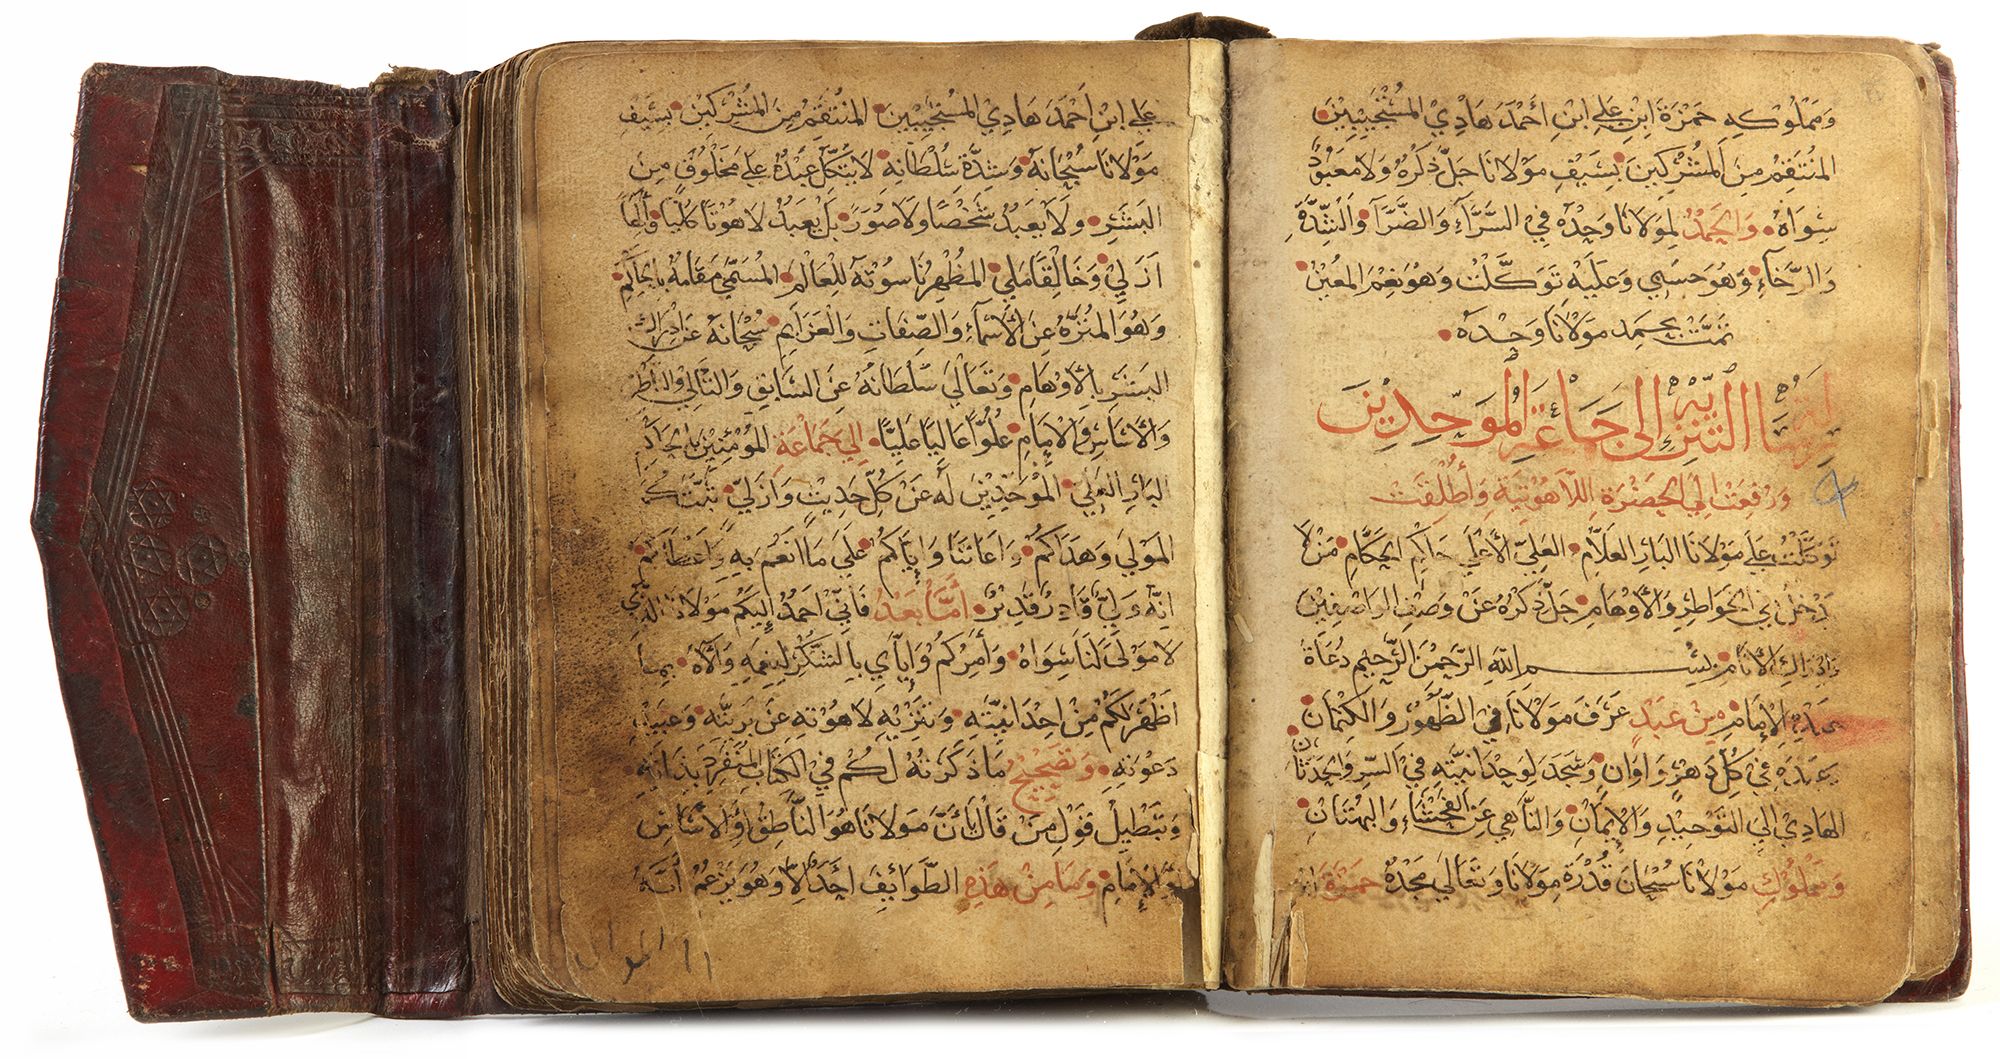 ومملوكه حمزة ابن علي ابن احمد هادي المستجيبين
المنتقم من المشركين بسيف مولانا جل ذكره ولا معبود
سواه والحمد لمولانا وحده في السراء والضراء والشدة
والرخاء وهو حسبي وعليه توكلت وهو نعم المعين
تمت بحمد مولانا وحده
التنزيه الى جماعة الموحدين
ورفعت الى الحضرة اللاهوتية وأطلقت
توكلت على مولانا البار العلام العلي الأعلى حاكم الحكام من لا
يدخل في الخواطر والأوهام جل ذكره عن وصف الواصفين
وادراك الأنام بسم الله الرحمن الرحيم دعاة
عبده الإمام من عبد عرف مولانا في الظهور والكتمان
بعبده في كل دهر واوان وسجد لوحدانيته في السر والحدثان
الهادي الى التوحيد والإيمان والناهي عن الفحشاء والبهتان
ومملوك مولانا سبحان قدرة مولانا وتعالى مجده حمزة ابن
علي ابن احمد هادي المستجيبين المنتقم من المشركين بسيف
مولانا سبحانه وشدة سلطانه لا يتكل عبده على مخلوق من
البشر ولا يعبد شخصا ولا صورة بل يعبد لاهوتا كليا وأبا
ازلي وخالقا ملي المظهر ناسوته للعالم المسمى مقامه بالحاكم
وهو المنزه عن الأسماء والصفات والعزايم سبحانه عن ادراك
البشر بالأوهام وتعالى سلطانه عن السابق والتالي والناطق
والأساس والإمام علوا عاليا عليا الى جماعة المؤمنين بالحاد
البار العلي الموحدين له عن كل حديث وازلي ثبتكم
المولى وهداكم واعاننا وإياكم على ما انعم به واعطاكم
انه ولي قادر قدير أما بعد فاني احمد إليكم مولانا الذي
لا مولى لنا سواه وأمركم وإياي بالشكر لنعمه وآلاه بما
اظهر لكم من احدانيته وتنزيه لاهوته عن بريته وعبيد
دعوته وتصحيح ما ذكرته لكم في الكتاب المنفرد بذاته
وتبطيل قول من قال بأن مولانا هو الناطق أو الأساس
أو الإمام وما من هذه الطوايف احد الا وهو يزعم أنه